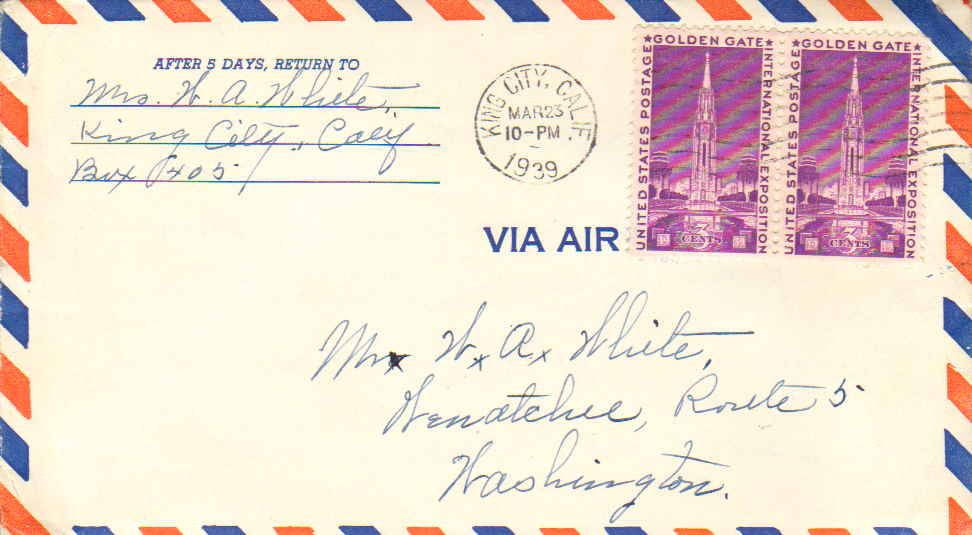 AFTER 5 DAYS, RETURN TO
Mrs. W. A. White,
King City, Calif.
Box 405
KING CITY, CALIF.
MAR 23
10-PM
1939
UNITED STATES POSTAGE
★GOLDEN GATE★
INTERNATIONAL EXPOSITION
3 CENTS
UNITED STATES POSTAGE
★GOLDEN GATE★
INTERNATIONAL EXPOSITION
3 CENTS
VIA AIR
Mr. W. A. White,
Wenatchee, Route 5
Washington.